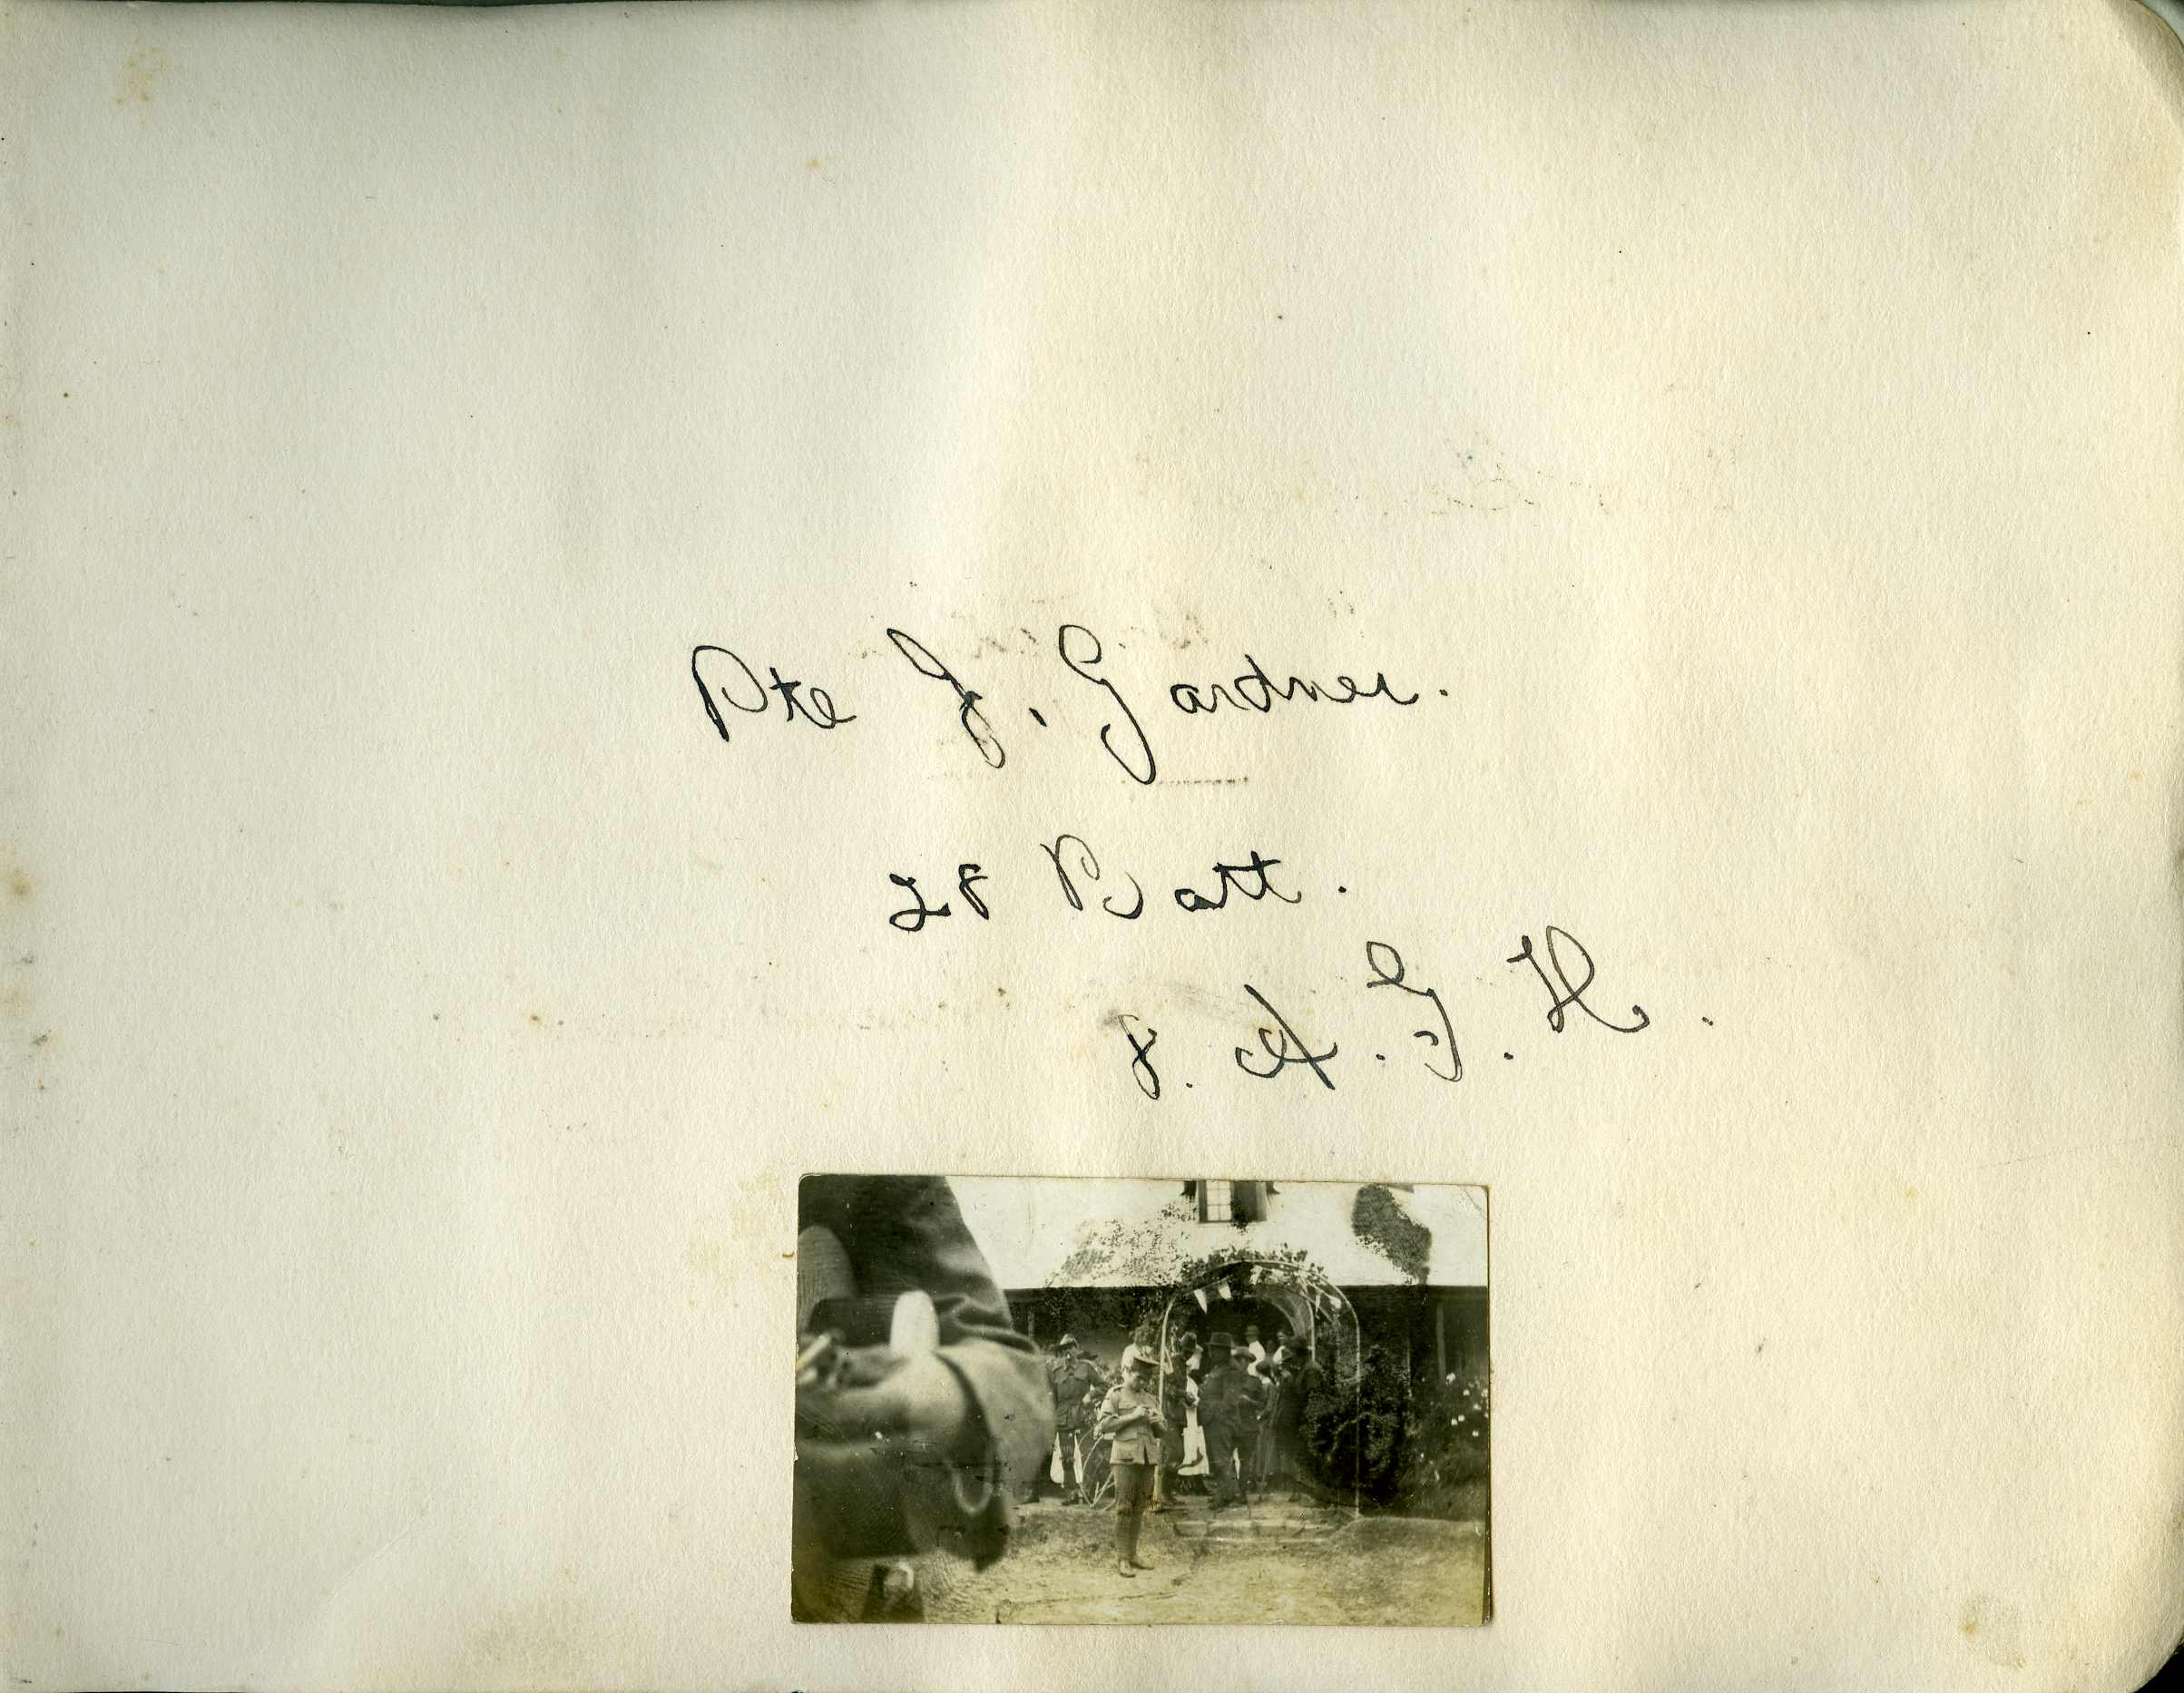 Pte J. Gardner.
28 Batt.
8. A. G. H.